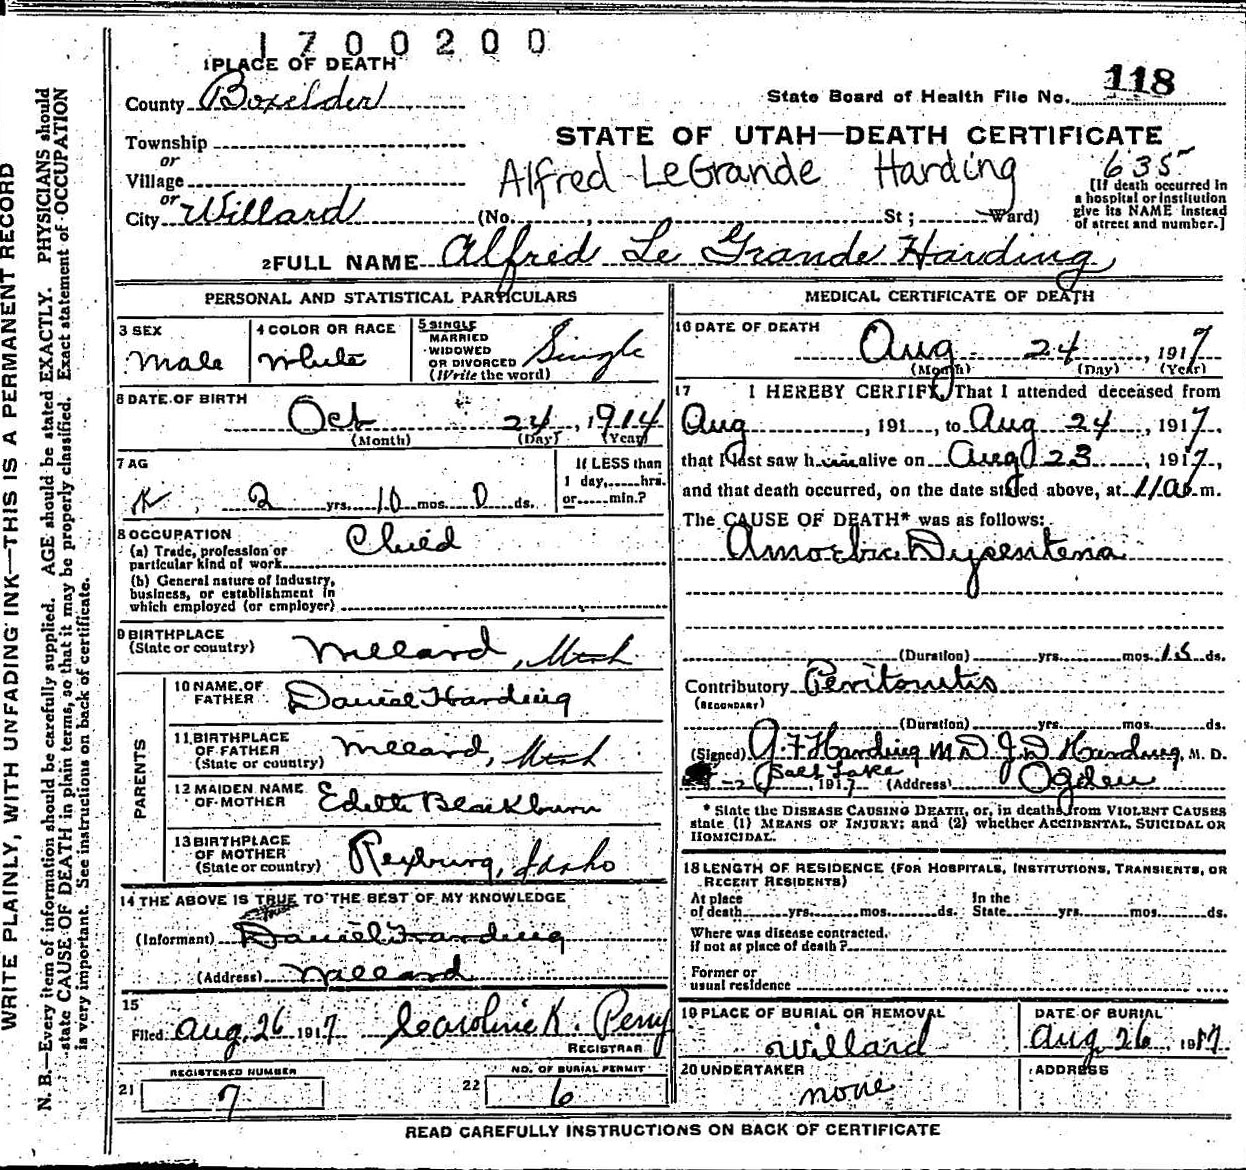 1700200
1 PLACE OF DEATH
118
County Boxelder
State Board of Health File No.
Township
STATE OF UTAH—DEATH CERTIFICATE
or
Village
Alfred LeGrande Harding
635
or
City Willard (No. , St; Ward)
[If death occurred in
a hospital or institution
give its NAME instead
of street and number.]
2 FULL NAME Alfred Le Grande Harding
PERSONAL AND STATISTICAL PARTICULARS
3 SEX
Male
4 COLOR OR RACE
White
5 SINGLE
MARRIED
WIDOWED
OR DIVORCED
(Write the word)
Single
6 DATE OF BIRTH
Oct 24, 1914
(Month) (Day) (Year)
7 AG
2 yrs. 10 mos. 0 ds.
If LESS than
1 day, hrs.
or min.?
8 OCCUPATION
(a) Trade, profession or
particular kind of work
Child
(b) General nature of industry,
business, or establishment in
which employed (or employer)
9 BIRTHPLACE
(State or country)
Willard, Utah
PARENTS
10 NAME OF
FATHER
Daniel Harding
11 BIRTHPLACE
OF FATHER
(State or country)
Willard, Utah
12 MAIDEN NAME
OF MOTHER
Edith Blackburn
13 BIRTHPLACE
OF MOTHER
(State or country)
Rexburg, Idaho
14 THE ABOVE IS TRUE TO THE BEST OF MY KNOWLEDGE
(Informant) Daniel Harding
(Address) Willard
15
Filed Aug. 26 1917 Caroline K. Perry
REGISTRAR
21
REGISTERED NUMBER
7
22
NO. OF BURIAL PERMIT
6
MEDICAL CERTIFICATE OF DEATH
16 DATE OF DEATH
Aug 24, 1917
(Month) (Day) (Year)
17 I HEREBY CERTIFY, That I attended deceased from
Aug , 191 , to Aug 24, 1917,
that I last saw h im alive on Aug 23, 1917,
and that death occurred, on the date stated above, at 11 a m.
The CAUSE OF DEATH* was as follows:
Amoebic Dysenteria
(Duration) yrs. mos. 15 ds.
Contributory Peritonitis
(SECONDARY)
(Duration) yrs. mos. ds.
(Signed) A. F. Harding MD J. D. Harding, M. D.
Salt Lake
, 1917 (Address) Ogden
* State the DISEASE CAUSING DEATH, or, in deaths from VIOLENT CAUSES
state (1) MEANS OF INJURY; and (2) whether ACCIDENTAL, SUICIDAL OR
HOMICIDAL.
18 LENGTH OF RESIDENCE (FOR HOSPITALS, INSTITUTIONS, TRANSIENTS, OR
RECENT RESIDENTS)
At place
of death yrs. mos. ds.
In the
State yrs. mos. ds.
Where was disease contracted,
if not at place of death?
Former or
usual residence
19 PLACE OF BURIAL OR REMOVAL
Willard
DATE OF BURIAL
Aug. 26 1917
20 UNDERTAKER
none
ADDRESS
READ CAREFULLY INSTRUCTIONS ON BACK OF CERTIFICATE
WRITE PLAINLY, WITH UNFADING INK—THIS IS A PERMANENT RECORD
N. B.—Every item of information should be carefully supplied. AGE should be stated EXACTLY. PHYSICIANS should
state CAUSE OF DEATH in plain terms, so that it may be properly classified. Exact statement of OCCUPATION
is very important. See instructions on back of certificate.